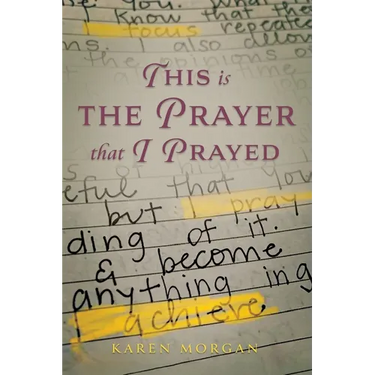 se. You. What
know that the
focus repeated
ns. I also allow
the opinions of
THIS is
THE PRAYER
that I PRAYED
s of
eful that you
but I pray
ding of it.
& become
anything ing
achieve.
KAREN MORGAN